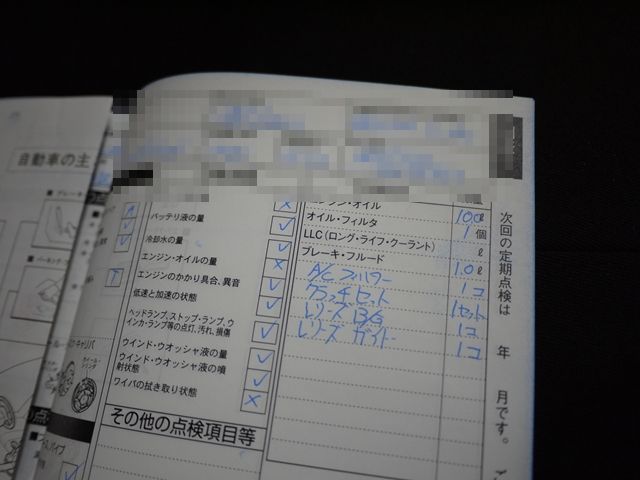 自動車の主
バッテリ液の量
冷却水の量
エンジン・オイルの量
エンジンのかかり具合、異音
低速と加速の状態
ヘッドランプ、ストップ・ランプ、ウ
インカ・ランプ等の点灯、汚れ、損傷
ウインド・ウオッシャ液の量
ウインド・ウオッシャ液の噴
射状態
ワイパの拭き取り状態
その他の点検項目等
エンジン・オイル 10.0 ℓ
オイル・フィルタ 1 個
LLC(ロング・ライフ・クーラント) ℓ
ブレーキ・フルード 1.0 ℓ
A/C フィルター 1コ
クラッチセット 1セット
レリーズ B/G 1コ
レリーズ ガイド 1コ
次回の定期点検は 年 月です。